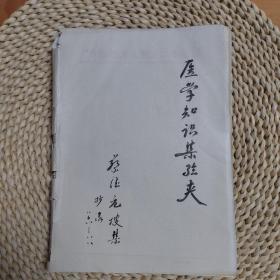 医学知识集锦夹
蔡德元搜集
抄录